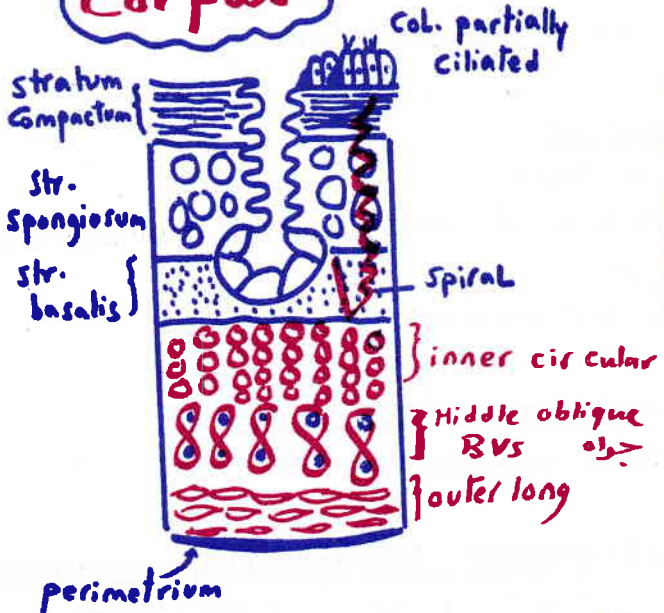 Corpus
col. partially
ciliated
stratum
compactum
str.
spongiosum
str.
basalis
spiral
inner circular
Middle oblique
BVs
outer long
perimetrium